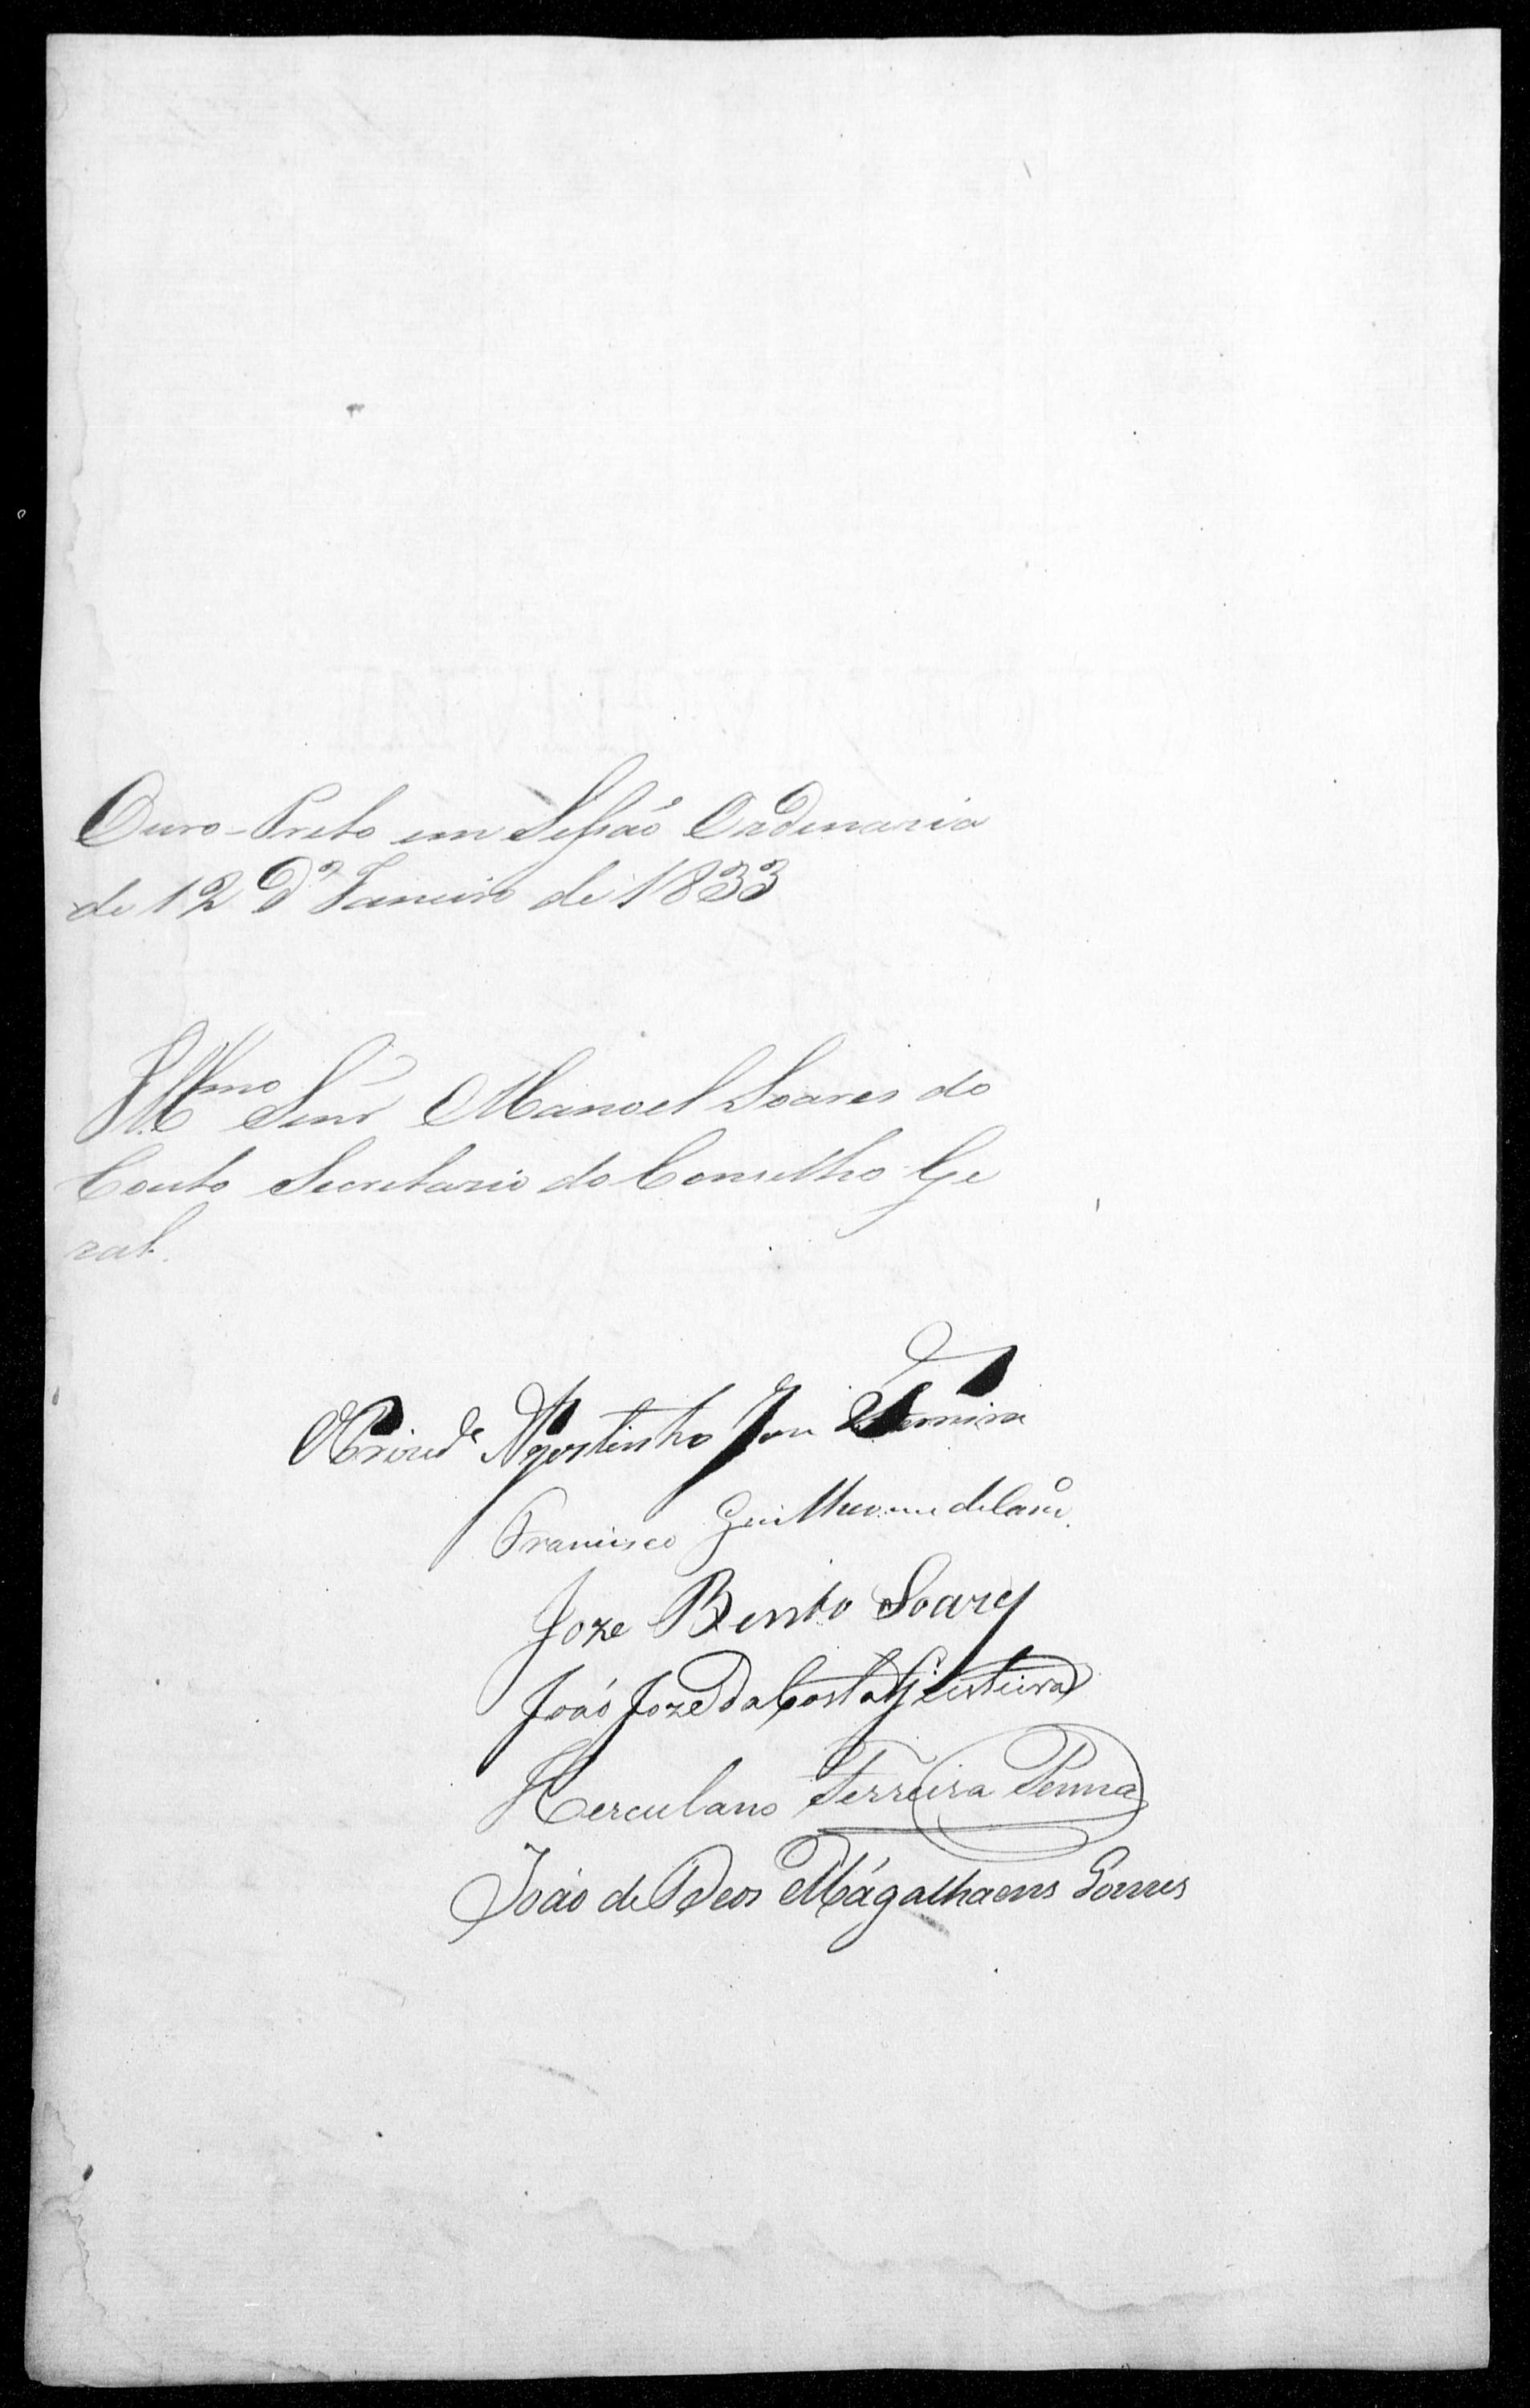 Ouro-Preto em Sessáo Ordinaria
de 12 de Janeiro de 1833
Illmo Senr Manoel Soares do
Couto Secretario do Conselho Ge
ral.
O Prezide Agostinho Joze Ferreira
Francisco Guilherme de Caro.
Joze Bento Soares
Joáo Joze da Costa
Herculano Ferreira Penna
Joáo de Deos Mágalhaens Gomes